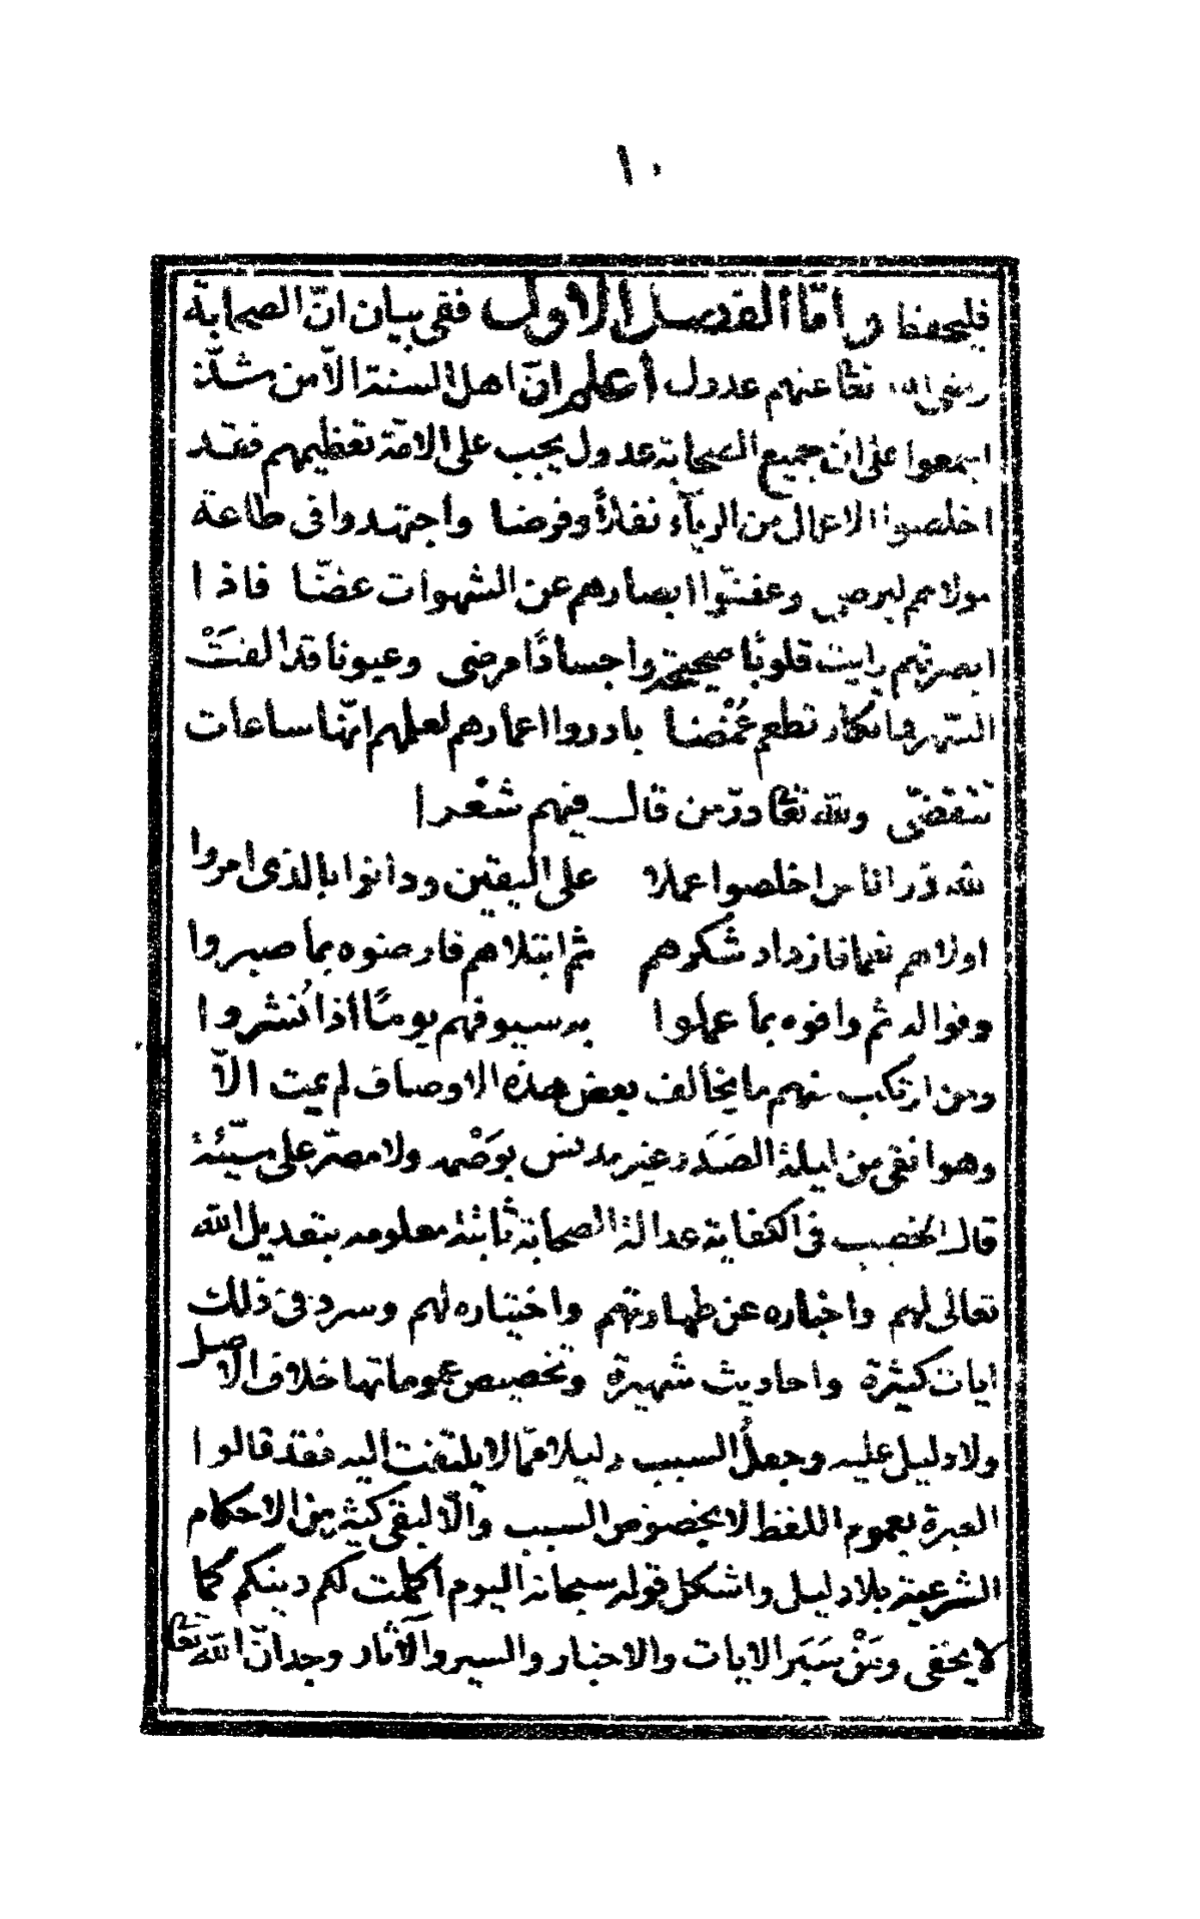 ١٠
فليحفظ وامّا الفصل الاول ففى بيان انّ الصحابة
رضى الله تعا عنهم عدول اعلم انّ اهل السنة الّا من شذّ
اجمعوا على ان جميع الصحابة عدول يجب على الامّة تعظيمهم فقد
اخلصوا الاعمال من الريآء نفلاً وفرضا واجتهدوا فى طاعة
مولاهم ليرضى وغضّوا ابصارهم عن الشهوات غضّا فاذا
ابصرتهم رايت قلوبًا صحيحة واجسادًا مرضى وعيونا قد الفَتْ
السّهر فما تكاد تطعم غُمْضا بادروا اعمارهم لعلمهم انّها ساعات
تَتَقَضّى ولله تعا درّ من قال فيهم شعرا
لله درّ اناس اخلصوا عملا على اليقين ودانوا بالذى امروا
اولاهم نعما فازداد شكرهم ثم ابتلاهم فارضوه بما صبروا
وفوا له ثم وافوه بما عملوا به سيوفهم يومًا اذا نُشروا
ومن ارتكب منهم ما يخالف بعض هذه الاوصاف لم يمت الّا
وهو انقى من ليلة الصَدَر غير مدنس بوَصْمه ولا مصرّ على سيّئة
قال الخصيب فى الكفاية عدالة الصحابة ثابتة معلومه بتعديل الله
تعالى لهم واخباره عن طهارتهم واختياره لهم وسرد فى ذلك
ايات كثيرة واحاديث شهيرة وتخصيص عموماتها خلاف الاصل
ولا دليل عليه وجعلُ السبب دليلا ممّا لا يلتفت اليه فقد قالوا
العبرة بعموم اللفظ لا بخصوص السبب والّا لبقى كثير من الاحكام
الشرعية بلا دليل واشكل قوله سبحانه اليوم اكملت لكم دينكم كما
لا يخفى ومَنْ سَبَر الايات والاخبار والسير والآثار وجد انّ الله تعا